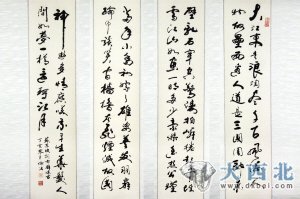 大江東去浪淘盡千古風流人
物故壘西邊人道是三國周郎赤
壁亂石穿空驚濤拍岸捲起千堆
雪江山如畫一時多少豪傑遙想公瑾
當年小喬初嫁了雄姿英發羽扇
綸巾談笑間檣櫓灰飛煙滅故國
神遊多情應笑我早生華髮人
間如夢一樽還酹江月
大西北